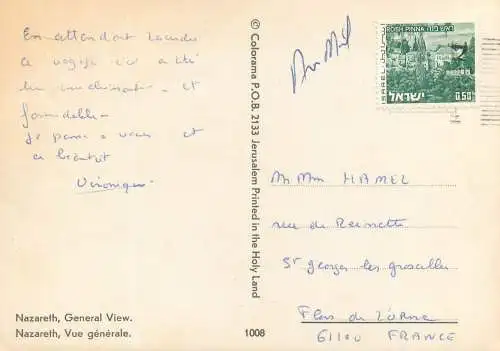 En attendant
ce voyage
enrichissant et
formidable
Je pense a vous et
a bientot
Véronique
Nazareth, General View.
Nazareth, Vue générale.
© Colorama P.O.B. 2133 Jerusalem Printed in the Holy Land
1008
Par Avion
ROSH PINNA ראש פינה
ISRAEL
ישראל
0.50
M Mme HAMEL
rue de
St georges les groseillers
Flers de l'Orne
61100 FRANCE